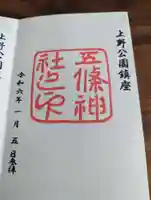 上野公園鎮座
五條神
社之印
令和六年一月五日参拝